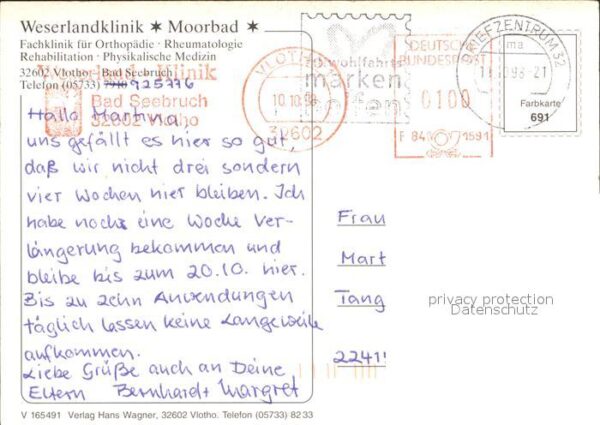 Weserlandklinik ✶ Moorbad ✶
Fachklinik für Orthopädie · Rheumatologie
Rehabilitation · Physikalische Medizin
32602 Vlotho · Bad Seebruch
Telefon (05733) 925776
Klinik
Bad Seebruch
32602 Vlotho
VLOTHO
10.10.98
32602
Wohlfahrts
marken
DEUTSCHE
BUNDESPOST
0100
F 84 1591
BRIEFZENTRUM 32
ma
98-21
Farbkarte
691
Hallo Martina
uns gefällt es hier so gut,
daß wir nicht drei sondern
vier Wochen hier bleiben. Ich
habe noch eine Woche Ver-
längerung bekommen und
bleibe bis zum 20.10. hier.
Bis zu zehn Anwendungen
täglich lassen keine Langeweile
aufkommen.
Liebe Grüße auch an Deine
Eltern Bernhardt Margret
Frau
Mart
Tang
2241
privacy protection
Datenschutz
V 165491 Verlag Hans Wagner, 32602 Vlotho. Telefon (05733) 82 33